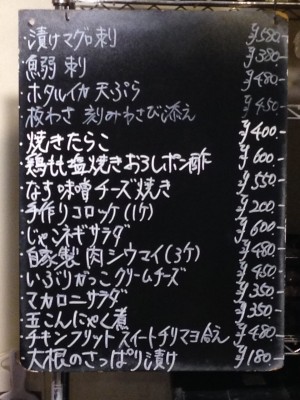 ・漬けマグロ刺 ¥580-
・鰯 刺 ¥380-
・ホタルイカ天ぷら ¥480-
・板わさ 刻みわさび添え ¥450-
・焼きたらこ ¥400-
・鶏もも塩焼きおろしポン酢 ¥600-
・なす味噌チーズ焼き ¥550-
・手作りコロッケ(1ケ) ¥200-
・じゃこネギサラダ ¥600-
・自家製 肉シウマイ(3ケ) ¥480-
・いぶりがっこクリームチーズ ¥450-
・マカロニサラダ ¥350-
・玉こんにゃく煮 ¥350-
・チキンフリット スイートチリマヨ合え ¥480-
・大根のさっぱり漬け ¥180-